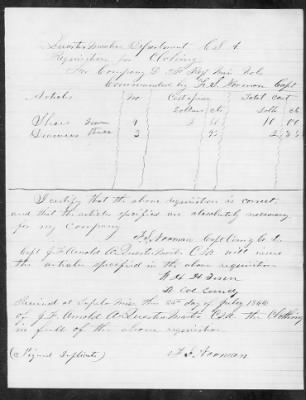 Quartermaster Department C S A
Requisition for Clothing
For Company D Regt Miss Vols
Commanded by F. S. Norman Capt
Articles No Cost of each Total Cost
Dollars cts Dolls cts
Shoes 2 10 00
Drawers Three 3 2
I certify that the above requisition is correct
and that the articles specified are absolutely necessary
for my Company
F. S. Norman Capt Comg Co D.
Capt J. F. Arnold A. Quarter Master CSA will issue
the articles specified in the above requisition
W. H. H.
Lt Col Comdg
Received at Tupelo Miss the 24th day of July 186
of J. F. Arnold A. Quarter Master CSA the Clothing
in full of the above requisition
(Signed Duplicate) F. S. Norman